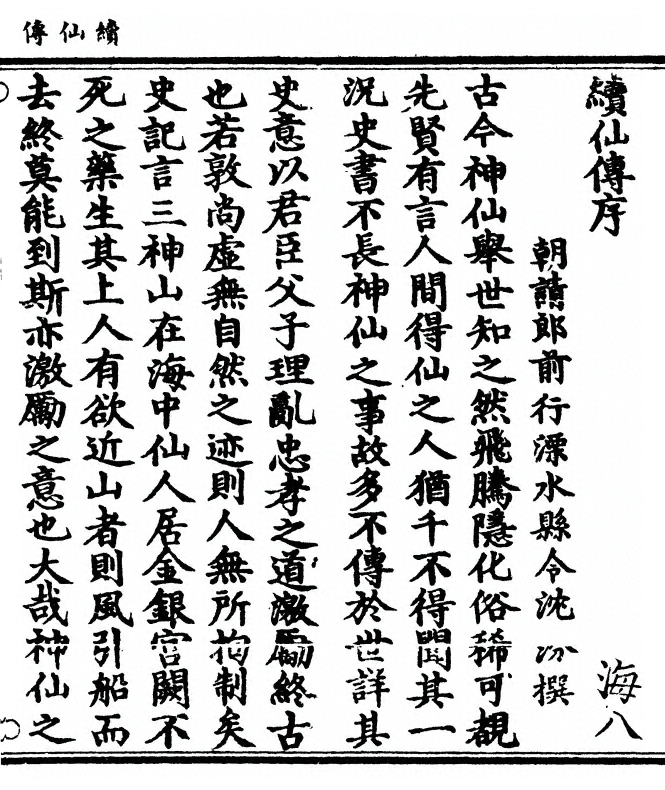 續仙傳
續仙傳序
海八
朝請郎前行溧水縣令沈汾撰
古今神仙舉世知之然飛騰隱化俗稀可覩
先賢有言人間得仙之人猶千不得聞其一
況史書不長神仙之事故多不傳於世詳其
史意以君臣父子理亂忠孝之道激勵終古
也若敦尚虛無自然之迹則人無所拘制矣
史記言三神山在海中仙人居金銀宮闕不
死之藥生其上人有欲近山者則風引船而
去終莫能到斯亦激勵之意也大哉神仙之